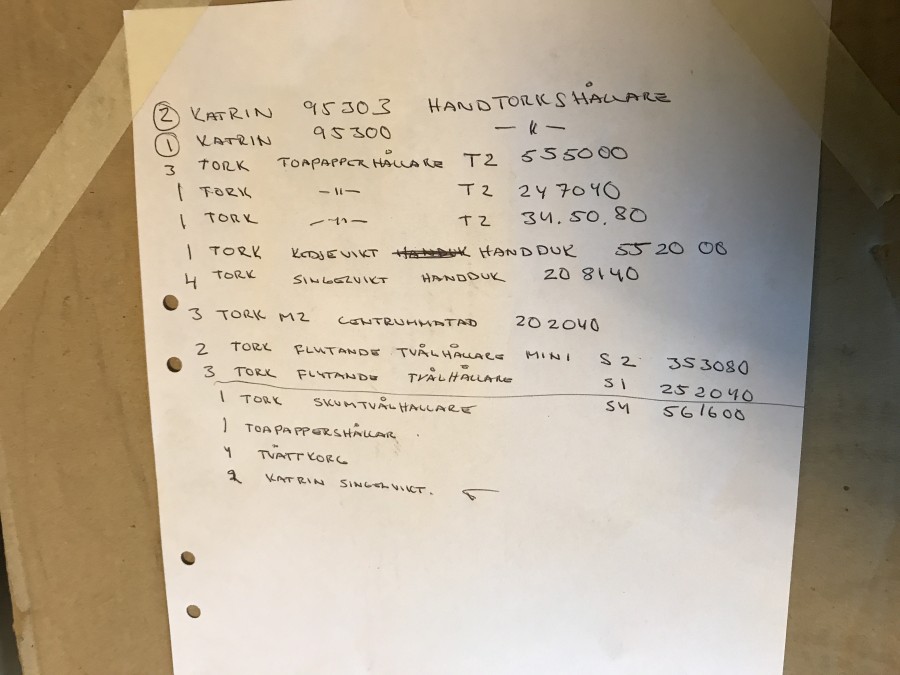 2 KATRIN 95303 HANDTORKSHÅLLARE
1 KATRIN 95300 —"—
3 TORK TOAPAPPERHÅLLARE T2 555000
1 TORK —"— T2 247040
1 TORK —"— T2 34.50.80
1 TORK KEDJEVIKT HANDDUK 55 20 00
4 TORK SINGELVIKT HANDDUK 20 8140
3 TORK M2 CENTRUMMATAD 202040
2 TORK FLYTANDE TVÅLHÅLLARE MINI S2 353080
3 TORK FLYTANDE TVÅLHÅLLARE S1 252040
1 TORK SKUMTVÅLHÅLLARE S4 561600
1 TOAPAPPERSHÅLLAR
4 TVÄTTKORG
2 KATRIN SINGELVIKT.